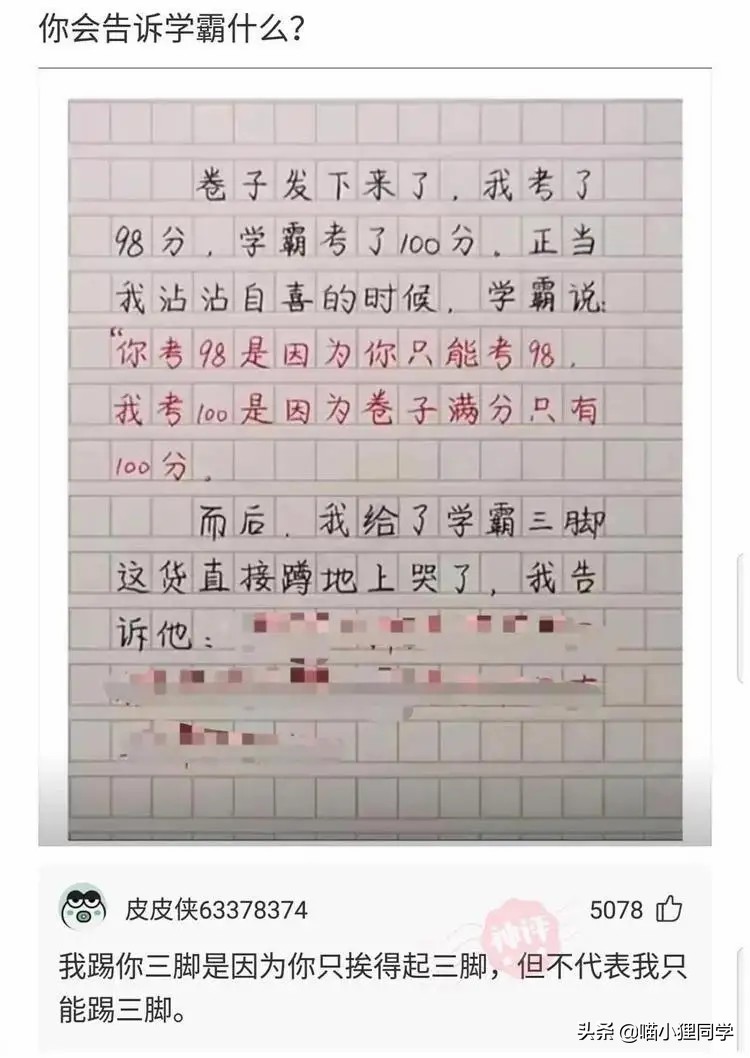 你会告诉学霸什么？
卷子发下来了，我考了
98分，学霸考了100分。正当
我沾沾自喜的时候，学霸说:
“你考98是因为你只能考98，
我考100是因为卷子满分只有
100分。
而后，我给了学霸三脚
这货直接蹲地上哭了，我告
诉他：
皮皮侠63378374
5078
神评
我踢你三脚是因为你只挨得起三脚，但不代表我只
能踢三脚。
头条 @喵小狸同学